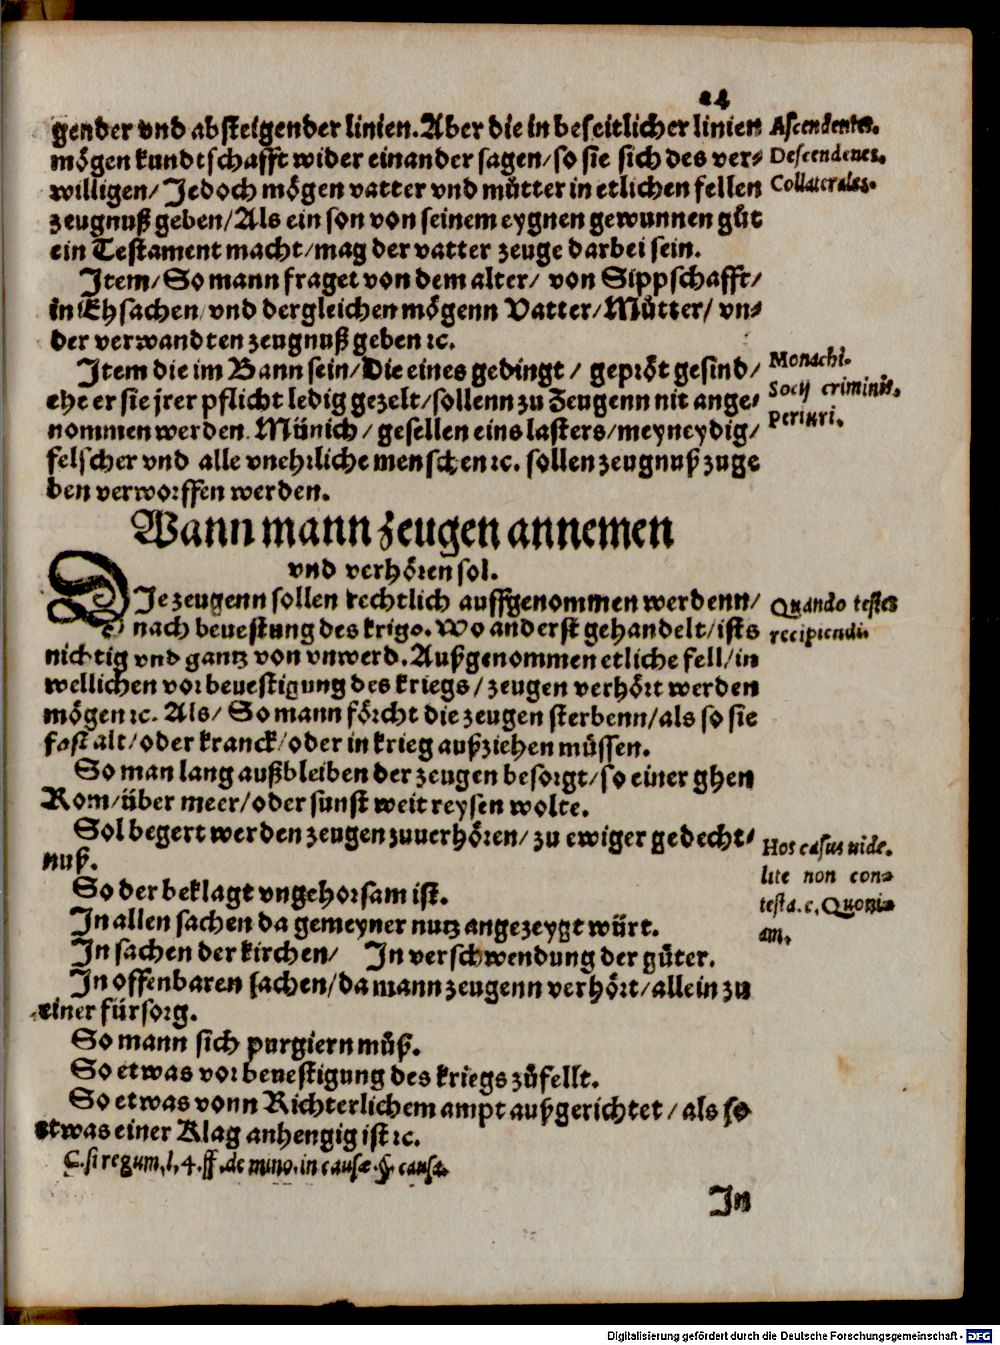 24
gender vnd absteigender linien. Aber die in beseitlicher linien
mögen kundtschafft wider einander sagen/ so sie sich des ver⸗
willigen/ Jedoch mögen vatter vnd mütter in etlichen fellen
zeugnuß geben/ Als ein son von seinem eygnen gewunnen gůt
ein Testament macht/ mag der vatter zeuge darbei sein.
Ascendentes.
Descendenes.
Collaterales.
Item/ So mann fraget von dem alter/ von Sippschafft/
in Ehsachen/ vnd dergleichen mögenn Vatter/ Můtter/ vn⸗
der verwandten zeugnuß geben ꝛc.
Item die im Bann sein/ Die eines gedingt / gepröt gesind/
ehe er sie jrer pflicht ledig gezelt/ sollenn zu Zeugenn nit ange⸗
nommen werden. Münich / gesellen eins lasters/ meyneydig/
felscher vnd alle vnehrliche menschen ꝛc. sollen zeugnuß zuge
ben verworffen werden.
Monachi.
Socij criminis.
Periuri.
Wann mann zeugen annemen
vnd verhören sol.
DIe zeugenn sollen rechtlich auffgenommen werdenn/
nach beuestung des krigs. Wo anderst gehandelt/ ists
nichtig vnd gantz von vnwerd. Außgenommen etliche fell/ in
wellichen vor beuestigung des kriegs / zeugen verhört werden
mögen ꝛc. Als/ So mann förcht die zeugen sterbenn/ als so sie
fast alt/ oder kranck/ oder in krieg außziehen müssen.
Quando testes
recipiendi.
So man lang außbleiben der zeugen besorgt/ so einer ghen
Rom/ über meer/ oder sunst weit reysen wolte.
Sol begert werden zeugen zuuerhören/ zu ewiger gedecht⸗
nuß.
So der beklagt vngehorsam ist.
In allen sachen da gemeyner nutz angezeygt würt.
In sachen der kirchen/ In verschwendung der gůter.
Hos casus uide.
lite non con⸗
testa. c. Quoni⸗
am.
In offenbaren sachen/ da mann zeugenn verhört/ allein zu
einer fürsorg.
So mann sich purgiern můß.
So etwas vor beuestigung des kriegs zůfellt.
So etwas vonn Richterlichem ampt außgerichtet / als so
etwas einer Klag anhengig ist ꝛc.
C. si regum, l, 4. ff. de mino. in causæ. §. causæ
In
Digitalisierung gefördert durch die Deutsche Forschungsgemeinschaft - DFG